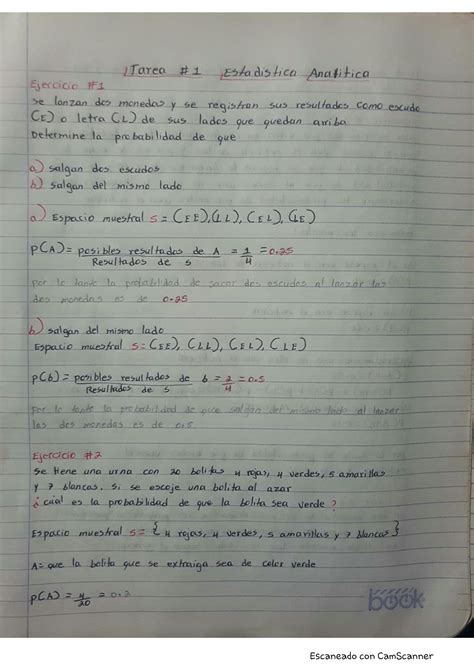 Tarea #1 Estadistica Analitica
Ejercicio #1
se lanzan dos monedas y se registran sus resultados como escudo
(E) o letra (L) de sus lados que quedan arriba
Determine la probabilidad de que
a) salgan dos escudos
b) salgan del mismo lado
a) Espacio muestral s = (EE),(LL), (EL), (LE)
P(A) = posibles resultados de A = 1 = 0.25
Resultados de s 4
Por lo tanto la probabilidad de sacar dos escudos al lanzar las
dos monedas es de 0.25
b) salgan del mismo lado
Espacio muestral s = (EE), (LL), (EL), (LE)
P(b) = posibles resultados de b = 2 = 0.5
Resultados de s 4
Por lo tanto la probabilidad de que salgan del mismo lado al lanzar
las dos monedas es de 0.5
Ejercicio #2
Se tiene una urna con 20 bolitas 4 rojas, 4 verdes, 5 amarillas
y 7 blancas. si se escoje una bolita al azar
¿cual es la probabilidad de que la bolita sea verde?
Espacio muestral s = { 4 rojas, 4 verdes, 5 amarillas y 7 blancas }
A = que la bolita que se extraiga sea de color verde
P(A) = 4 = 0.2
20
book
Escaneado con CamScanner